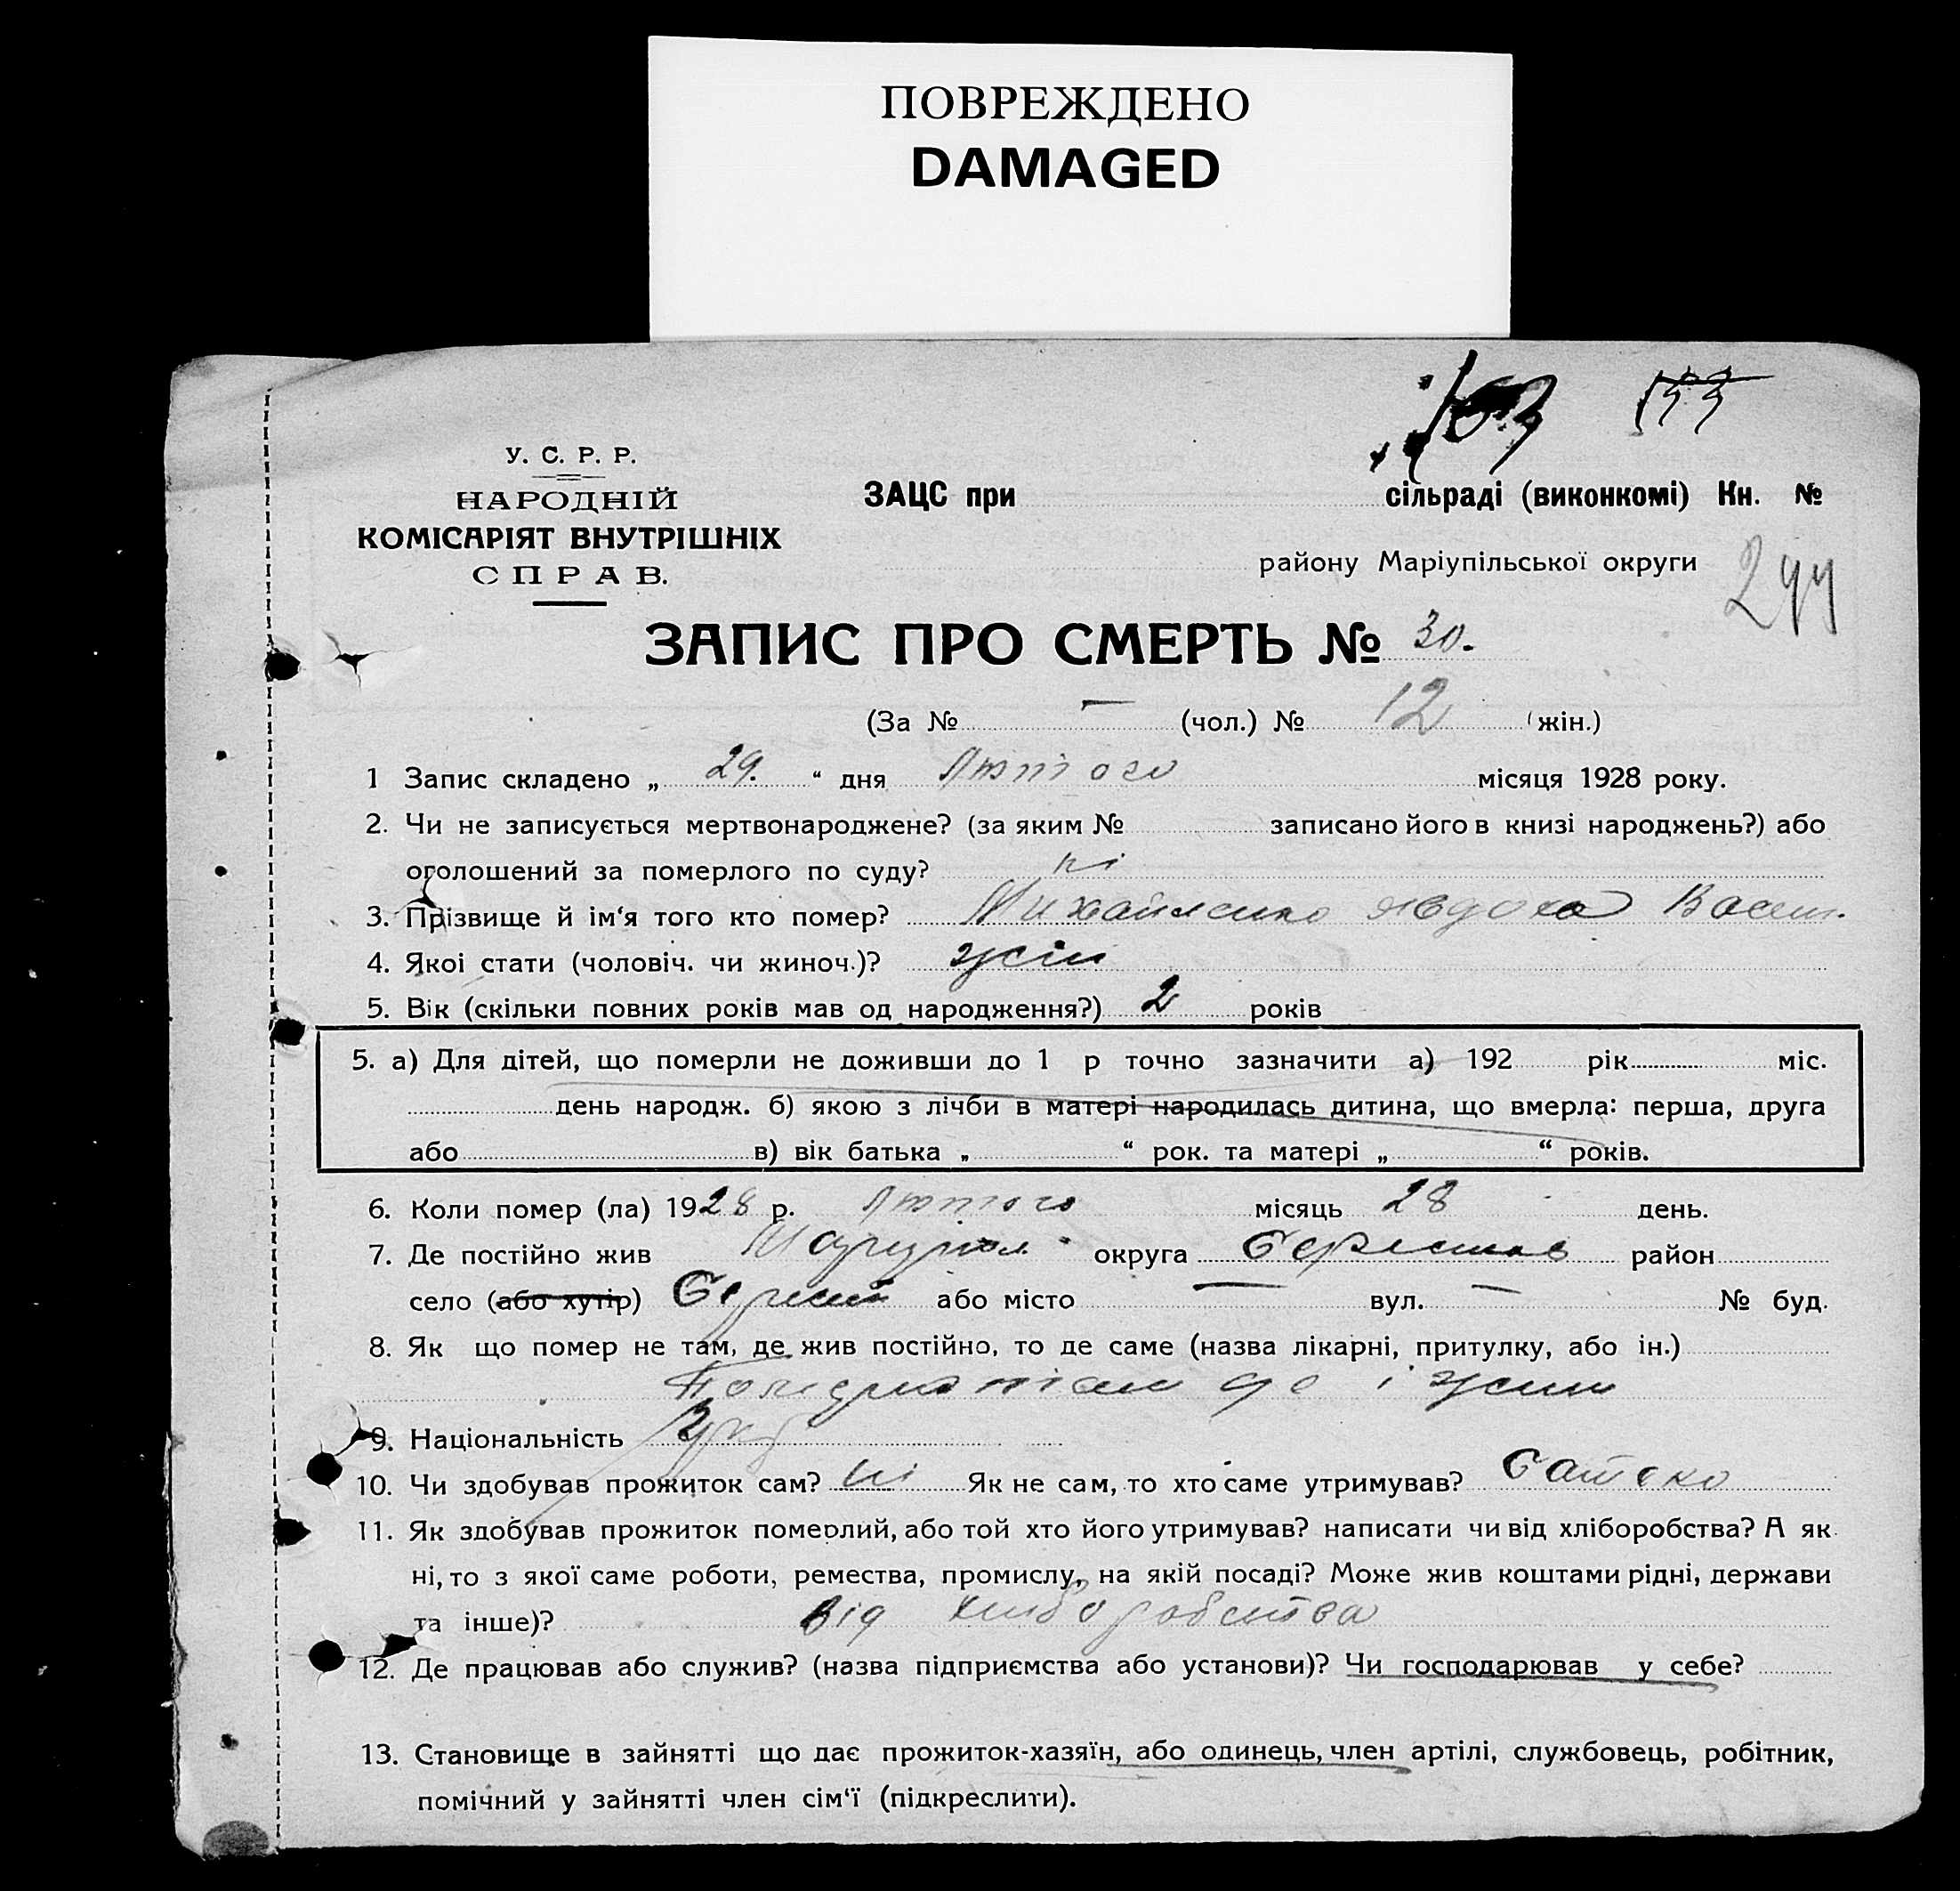 ПОВРЕЖДЕНО
DAMAGED
У. С. Р. Р.
НАРОДНІЙ
КОМІСАРІЯТ ВНУТРІШНІХ
СПРАВ.
ЗАЦС при сільраді (виконкомі) Кн. №
району Маріупільської округи
ЗАПИС ПРО СМЕРТЬ № 30.
(За № — (чол.) № 12 (жін.)
1 Запис складено „ 29. “ дня Лютого місяця 1928 року.
2. Чи не записується мертвонароджене? (за яким № записано його в книзі народжень?) або
оголошений за померлого по суду? ні
3. Прізвище й ім‘я того кто помер? Михайленко Явдоха Васил.
4. Якої стати (чоловіч. чи жиноч.)? жін
5. Вік (скільки повних років мав од народження?) 2 років
5. а) Для дітей, що померли не доживши до 1 р точно зазначити а) 192 рік міс.
день народж. б) якою з лічби в матері народилась дитина, що вмерла: перша, друга
або в) вік батька „ “ рок. та матері „ “ років.
6. Коли помер (ла) 1928 р. Лютого місяць 28 день.
7. Де постійно жив Маріупол. округа район
село (або хутір) або місто — вул. — № буд.
8. Як що помер не там, де жив постійно, то де саме (назва лікарні, притулку, або ін.)
де і жил
9. Національність Укр
10. Чи здобував прожиток сам? ні Як не сам, то хто саме утримував? батько
11. Як здобував прожиток померлий, або той хто його утримував? написати чи від хліборобства? А як
ні, то з якої саме роботи, ремества, промислу, на якій посаді? Може жив коштами рідні, держави
та інше)? Від хліборобства
12. Де працював або служив? (назва підприємства або установи)? Чи господарював у себе?
13. Становище в зайнятті що дає прожиток-хазяїн, або одинець, член артілі, службовець, робітник,
помічний у зайнятті член сім‘ї (підкреслити).